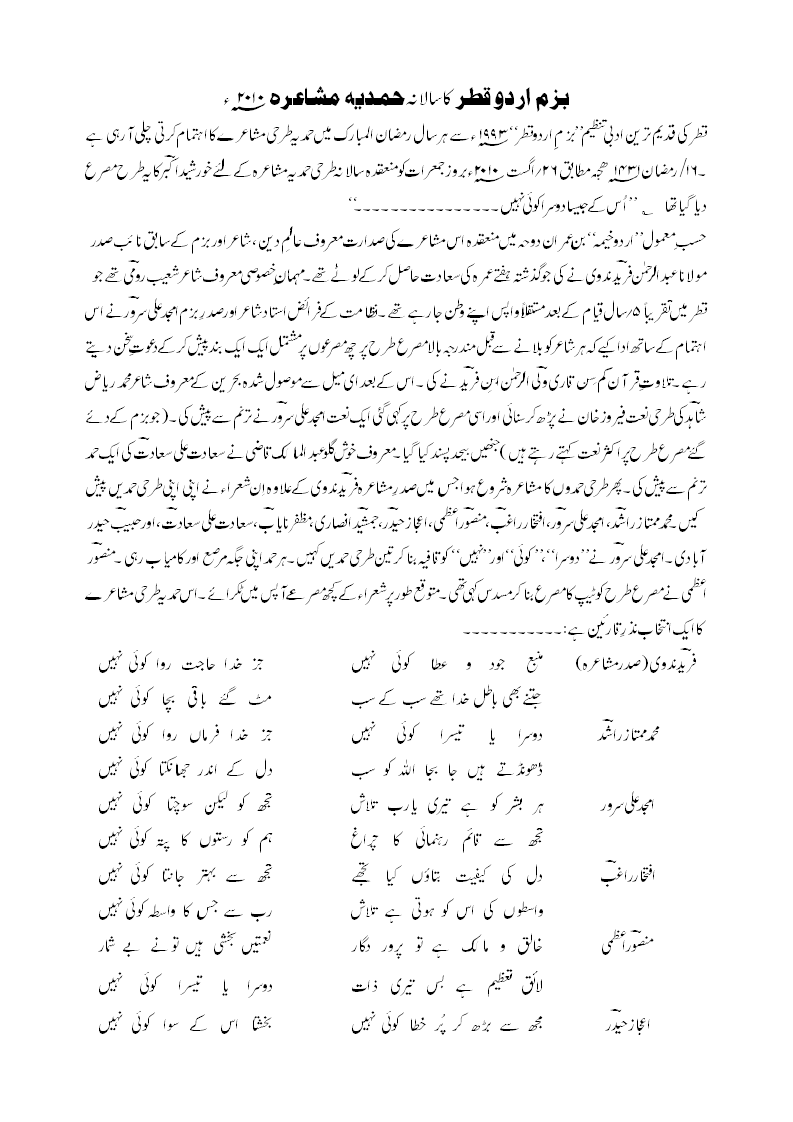 بزم اردو قطر کا سالانہ حمدیہ مشاعرہ ۲۰۱۰ء
قطر کی قدیم ترین ادبی تنظیم ”بزمِ اردو قطر“ ۱۹۹۳ء سے ہر سال رمضان المبارک میں حمدیہ طرحی مشاعرے کا اہتمام کرتی چلی آ رہی ہے
۔۱۶/ رمضان ۱۴۳۱ ھجہ مطابق ۲۶/ اگست ۲۰۱۰ء بروز جمعرات کو منعقدہ سالانہ طرحی حمدیہ مشاعرہ کے لئے خورشید اکبؔر کا یہ طرح مصرع
دیا گیا تھا ؂ ”اُس کے جیسا دوسرا کوئی نہیں۔۔۔۔۔۔۔۔۔۔۔۔۔۔۔۔“
حسبِ معمول ”اردو خیمہ“ بن عمران دوحہ میں منعقدہ اس مشاعرے کی صدارت معروف عالمِ دین، شاعر اور بزم کے سابق نائب صدر
مولانا عبدالرحمٰن فرؔید ندوی نے کی جو گذشتہ ہفتے عمرہ کی سعادت حاصل کر کے لوٹے تھے۔ مہمانِ خصوصی معروف شاعر شعیب رومؔی تھے جو
قطر میں تقریباً ۵/ سال قیام کے بعد مستقلاً واپس اپنے وطن جا رہے تھے۔ نظامت کے فرائض استاد شاعر اور صدرِ بزم امجد علی سرورؔ نے اس
اہتمام کے ساتھ ادا کیے کہ ہر شاعر کو بلانے سے قبل مندرجہ بالا مصرع طرح پر چھ مصرعوں پر مشتمل ایک ایک بند پیش کر کے دعوتِ سخن دیتے
رہے۔ تلاوتِ قرآن کم سِن قاری وکی الرحمٰن ابنِ فرید نے کی۔ اس کے بعد ای میل سے موصول شدہ بحرین کے معروف شاعر محمد ریاض
شاہؔد کی طرحی نعت فیروز خان نے پڑھ کر سنائی اور اسی مصرع طرح پر کہی گئی ایک نعت امجد علی سرورؔ نے ترنم سے پیش کی۔ (جو بزم کے دئے
گئے مصرع طرح پر اکثر نعت کہتے رہتے ہیں) جنھیں بیحد پسند کیا گیا۔ معروف خوش گلو عبدالمالک قاضی نے سعادت علی سعادؔت کی ایک حمد
ترنم سے پیش کی۔ پھر طرحی حمدوں کا مشاعرہ شروع ہوا جس میں صدرِ مشاعرہ فرؔید ندوی کے علاوہ ان شعراء نے اپنی اپنی طرحی حمدیں پیش
کیں۔ محمد ممتاز راشدؔ، امجد علی سرورؔ، افتخار راغبؔ، منصورؔ اعظمی، اعجاز حیدرؔ، جمشیدؔ انصاری، مظفر نایابؔ، سعادت علی سعادتؔ، اور حبیبؔ حیدر
آبادی۔ امجد علی سرورؔ نے ”دوسرا“، ”کوئی“ اور ”نہیں“ کو قافیہ بنا کر تین طرحی حمدیں کہیں۔ ہر حمد اپنی جگہ مرصع اور کامیاب رہی۔ منصورؔ
اعظمی نے مصرع طرح کو ٹیپ کا مصرع بنا کر مسدس کہی تھی۔ متوقع طور پر شعراء کے کچھ مصرعے آپس میں ٹکرائے۔ اس حمدیہ طرحی مشاعرے
کا ایک انتخاب نذرِ قارئین ہے:۔۔۔۔۔۔۔۔۔۔۔
فرؔید ندوی (صدر مشاعرہ) منبع جود و عطا کوئی نہیں جز خدا حاجت روا کوئی نہیں
جتنے بھی باطل خدا تھے سب کے سب مٹ گئے باقی بچا کوئی نہیں
محمد ممتاز راشدؔ دوسرا یا تیسرا کوئی نہیں جز خدا فرماں روا کوئی نہیں
ڈھونڈتے ہیں جا بجا اللہ کو سب دل کے اندر جھانکتا کوئی نہیں
امجد علی سرور ہر بشر کو ہے تیری یا رب تلاش تجھ کو لیکن سوچتا کوئی نہیں
تجھ سے قائم رہنمائی کا چراغ ہم کو رستوں کا پتہ کوئی نہیں
افتخار راغبؔ دل کی کیفیت بتاؤں کیا تجھے تجھ سے بہتر جانتا کوئی نہیں
واسطوں کی اس کو ہوتی ہے تلاش رب سے جس کا واسطہ کوئی نہیں
منصورؔ اعظمی خالق و مالک ہے تو پرور دگار نعمتیں بخشی ہیں تو نے بے شمار
لائق تعظیم ہے بس تیری ذات دوسرا یا تیسرا کوئی نہیں
اعجاز حیدرؔ مجھ سے بڑھ کر پُر خطا کوئی نہیں بخشتا اس کے سوا کوئی نہیں